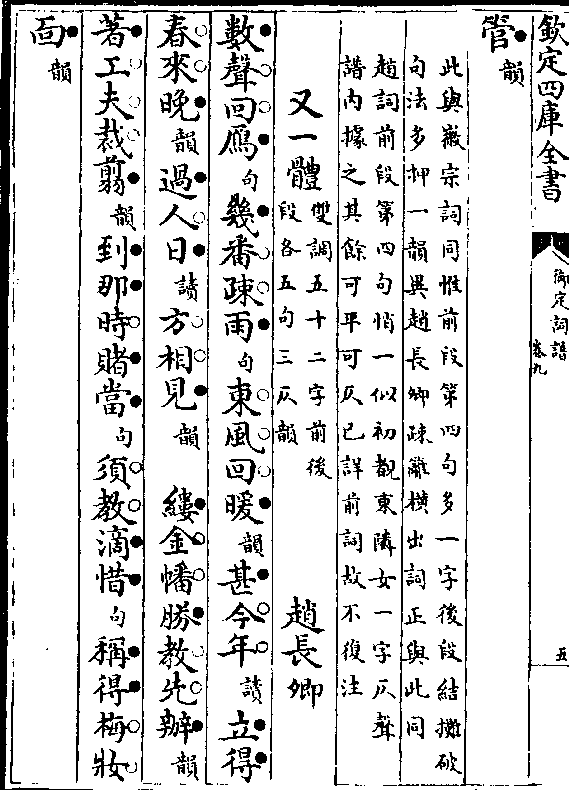 欽定四庫全書
御定詞譜
卷九
五
管韻
此與徽宗詞同惟前段第四句多一字後段結攤破
句法多押一韻與趙長卿疎籬橫出詞正與此同
趙詞前段第四句悄一似初覩東隣女一字仄聲
譜内據之其餘可平可仄已詳前詞故不復注
又一體 雙調五十二字前後
段各五句三仄韻 趙長卿
數聲回鴈句幾番疎雨句東風回暖韻甚今年讀立得
春來晚韻過人日讀方相見韻 縷金幡勝教先辦韻
着工夫裁翦韻到那時賭當句須教滴惜句稱得梅妝
面韻